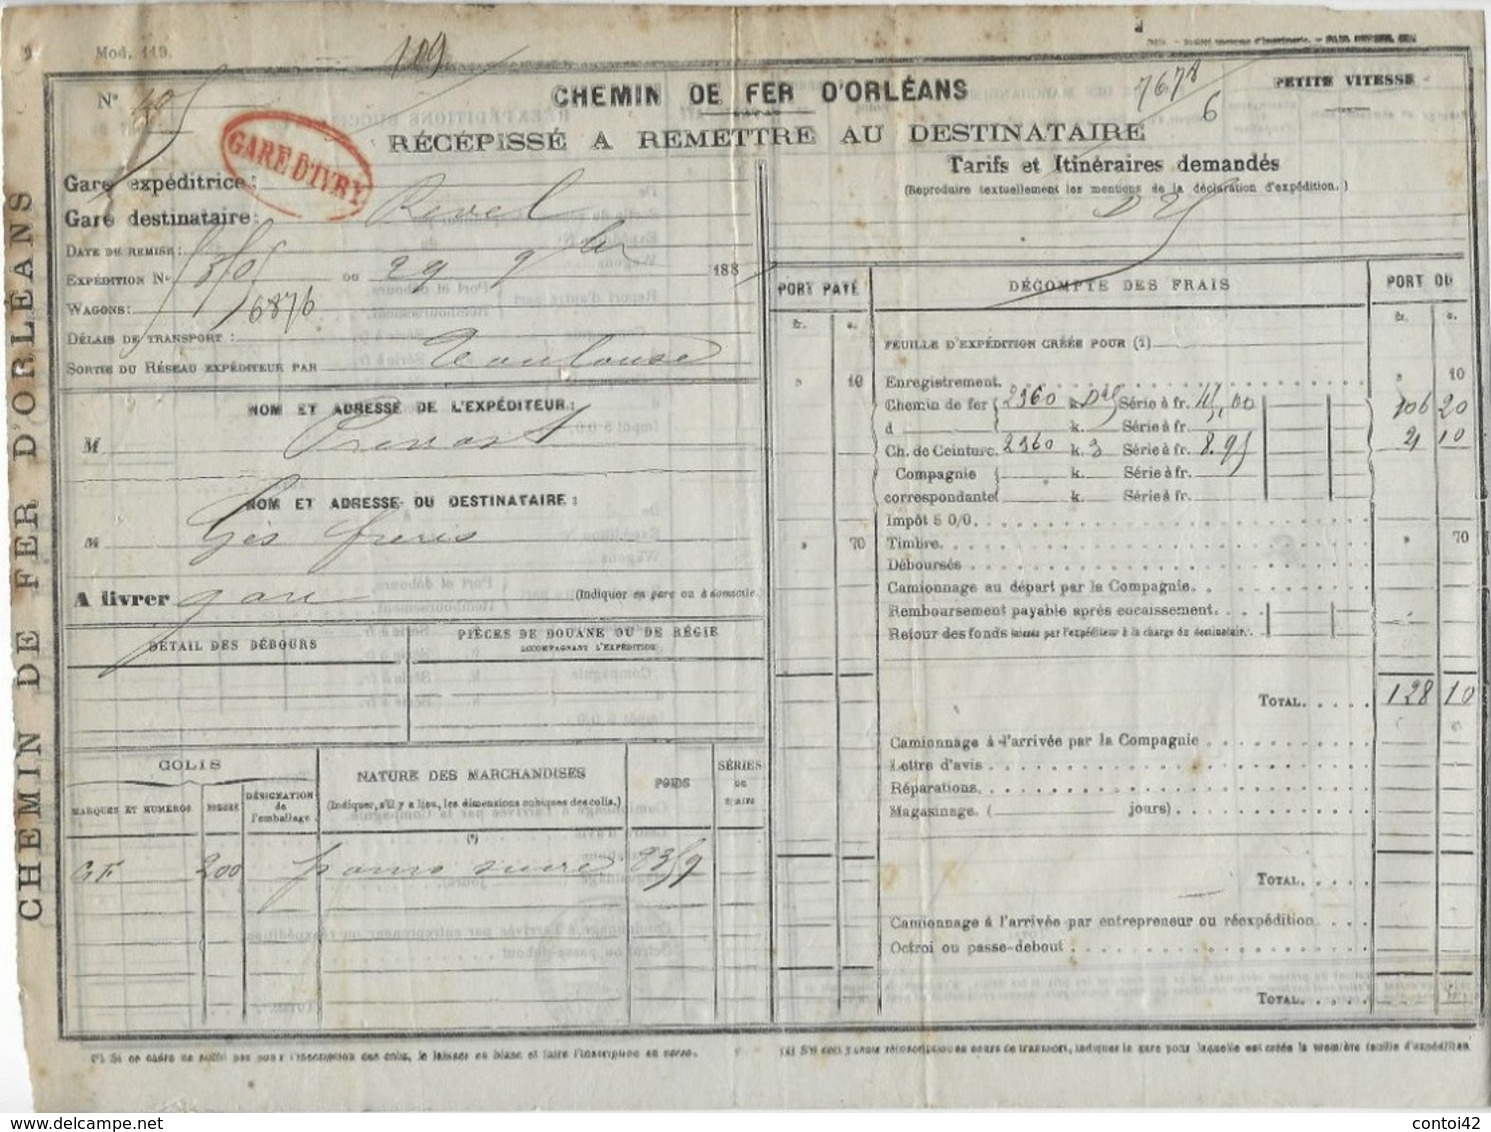 Mod. 119.
109
N°
CHEMIN DE FER D'ORLÉANS
7678
6
PETITE VITESSE
RÉCÉPISSÉ A REMETTRE AU DESTINATAIRE
GARE D'IVRY
Gare expéditrice:
Gare destinataire: Revel
DATE DE REMISE:
EXPÉDITION N° DU 29 9bre 188
WAGONS: 16876
DÉLAIS DE TRANSPORT:
SORTIE DU RÉSEAU EXPÉDITEUR PAR Toulouse
NOM ET ADRESSE DE L'EXPÉDITEUR:
M
NOM ET ADRESSE DU DESTINATAIRE:
M Gès frères
A livrer gare (Indiquer en gare ou à domicile.
DÉTAIL DES DÉBOURS
PIÈCES DE DOUANE OU DE RÉGIE
ACCOMPAGNANT L'EXPÉDITION
COLIS
MARQUES ET NUMÉROS
NOMBRE
DÉSIGNATION
de
l'emballage
NATURE DES MARCHANDISES
(Indiquer, s'il y a lieu, les dimensions cubiques des colis.)
(*)
POIDS
SÉRIES
OU
TARIFS
GF 200 pains sucre
Tarifs et Itinéraires demandés
(Reproduire textuellement les mentions de la déclaration d'expédition.)
PORT PAYÉ
DÉCOMPTE DES FRAIS
PORT DU
fr. c.
fr. c.
FEUILLE D'EXPÉDITION CRÉÉE POUR (2)
» 10 Enregistrement. » 10
Chemin de fer 2360 k. Série à fr. 45,00 106 20
d k. Série à fr.
Ch. de Ceinture. 2360 k. 3 Série à fr. 8.95 21 10
Compagnie k. Série à fr.
correspondante k. Série à fr.
Impôt 5 0/0.
» 70 Timbre. » 70
Déboursés
Camionnage au départ par la Compagnie.
Remboursement payable après encaissement.
Retour des fonds laissés par l'expéditeur à la charge du destinataire.
TOTAL. 128 10
Camionnage à l'arrivée par la Compagnie
Lettre d'avis
Réparations.
Magasinage. ( jours)
TOTAL.
Camionnage à l'arrivée par entrepreneur ou réexpédition
Octroi ou passe-debout
TOTAL.
(*) Si ce cadre ne suffit pas pour l'inscription des colis, le laisser en blanc et faire l'inscription au verso.
CHEMIN DE FER D'ORLÉANS
contoi42